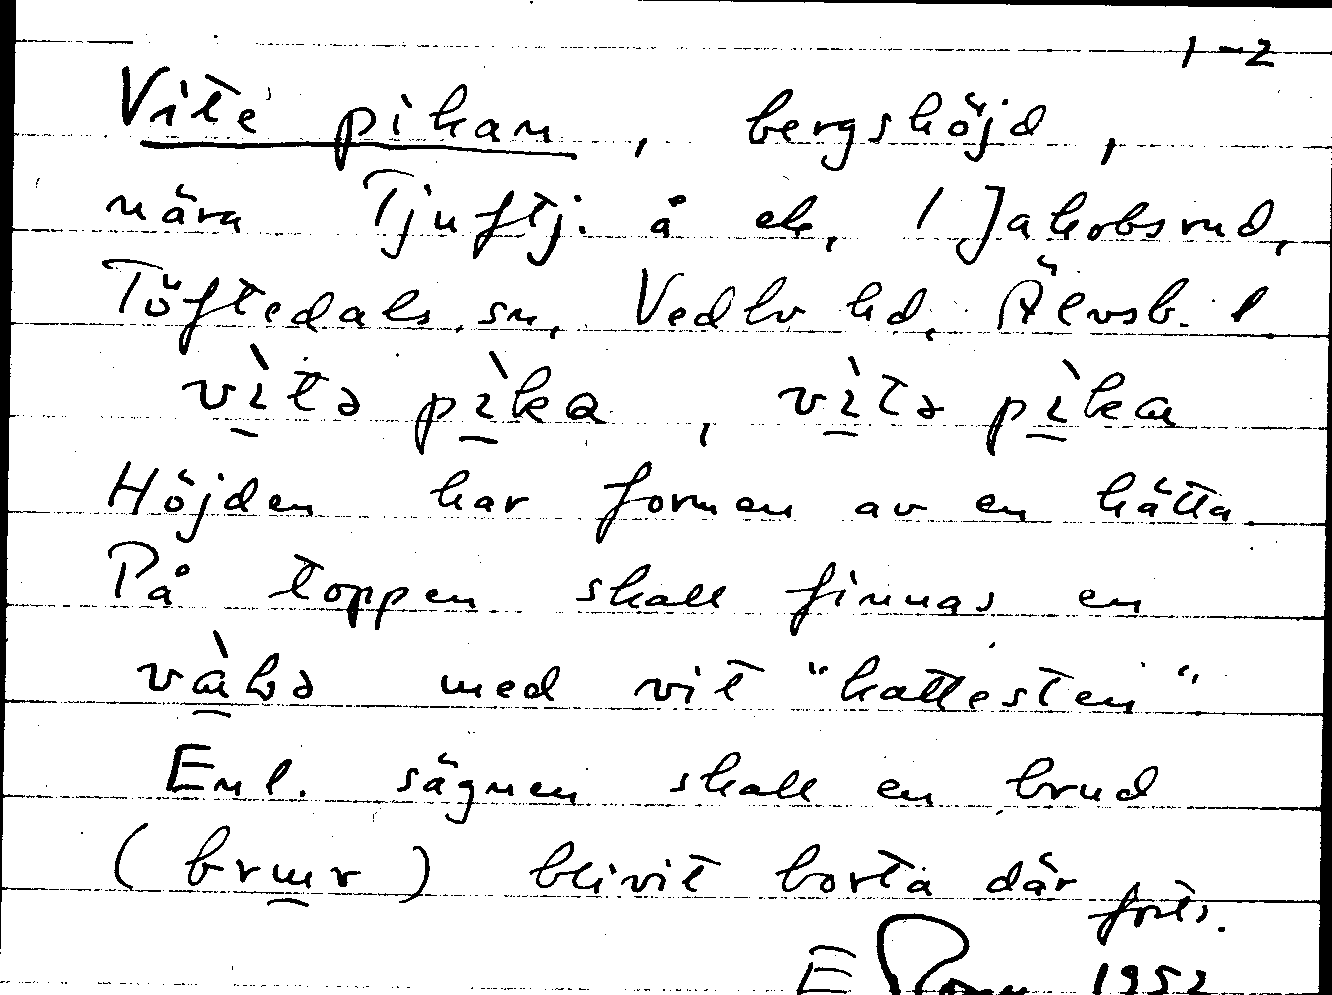 1-2
Vite pikan, bergshöjd,
nära Tjuftj. å ek. 1 Jakobsrud,
Töftedals sn, Vedbo hd, Älvsb. l.
vìtə pìka, vìtə pìkɑ
Höjden har formen av en hätta.
På toppen skall finnas en
med vit "kattesten".
Enl. sägnen skall en brud
(brɯr) blivit borta där forts.
E 1952